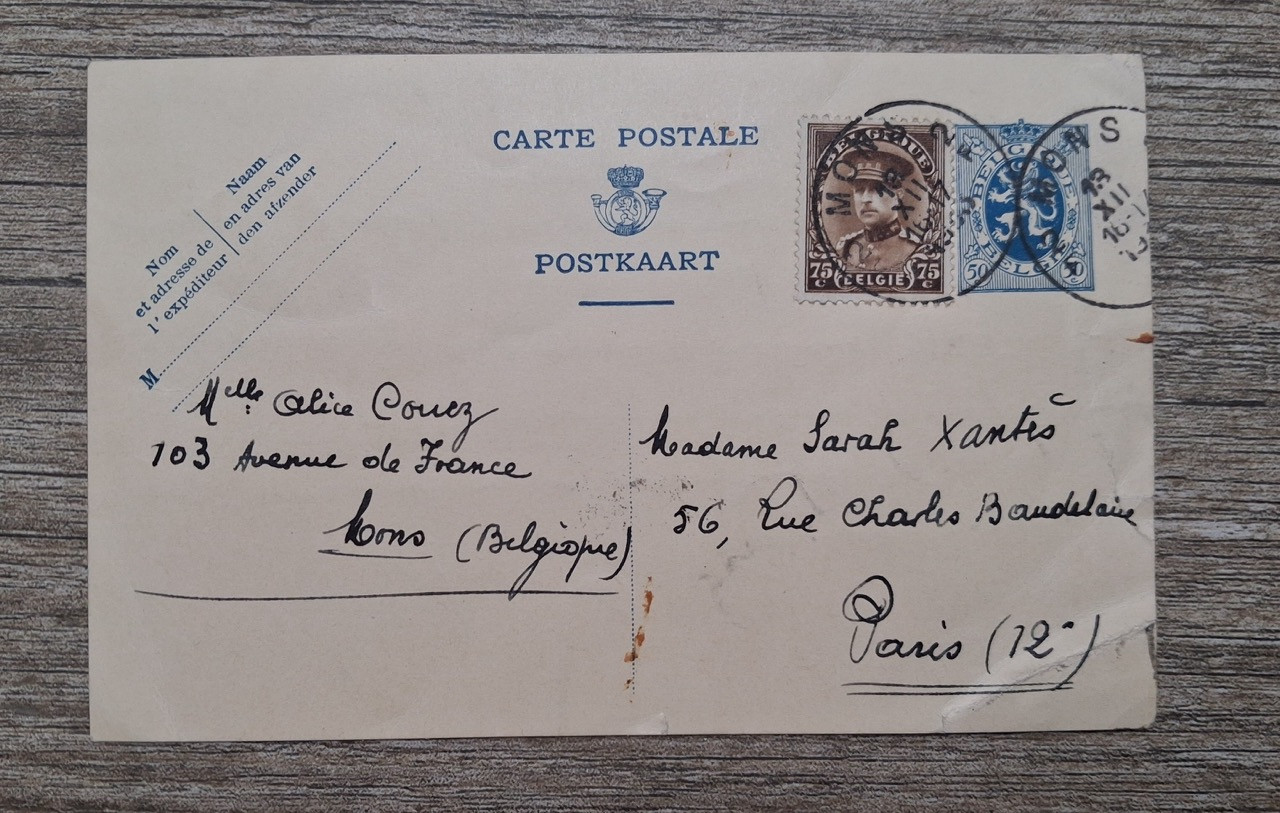 CARTE POSTALE
POSTKAART
Nom
et adresse de
l'expéditeur
Naam
en adres van
den afzender
M
BELGIQUE
75 c BELGIË 75 c
BELGIQUE BELGIË
50 c 50 c
MONS 2
18 XII 16-17
MONS 2
18 XII
Mlle Alice Couez
103 Avenue de France
Mons (Belgique)
Madame Sarah Xantès
56, Rue Charles Baudelaire
Paris (12e)